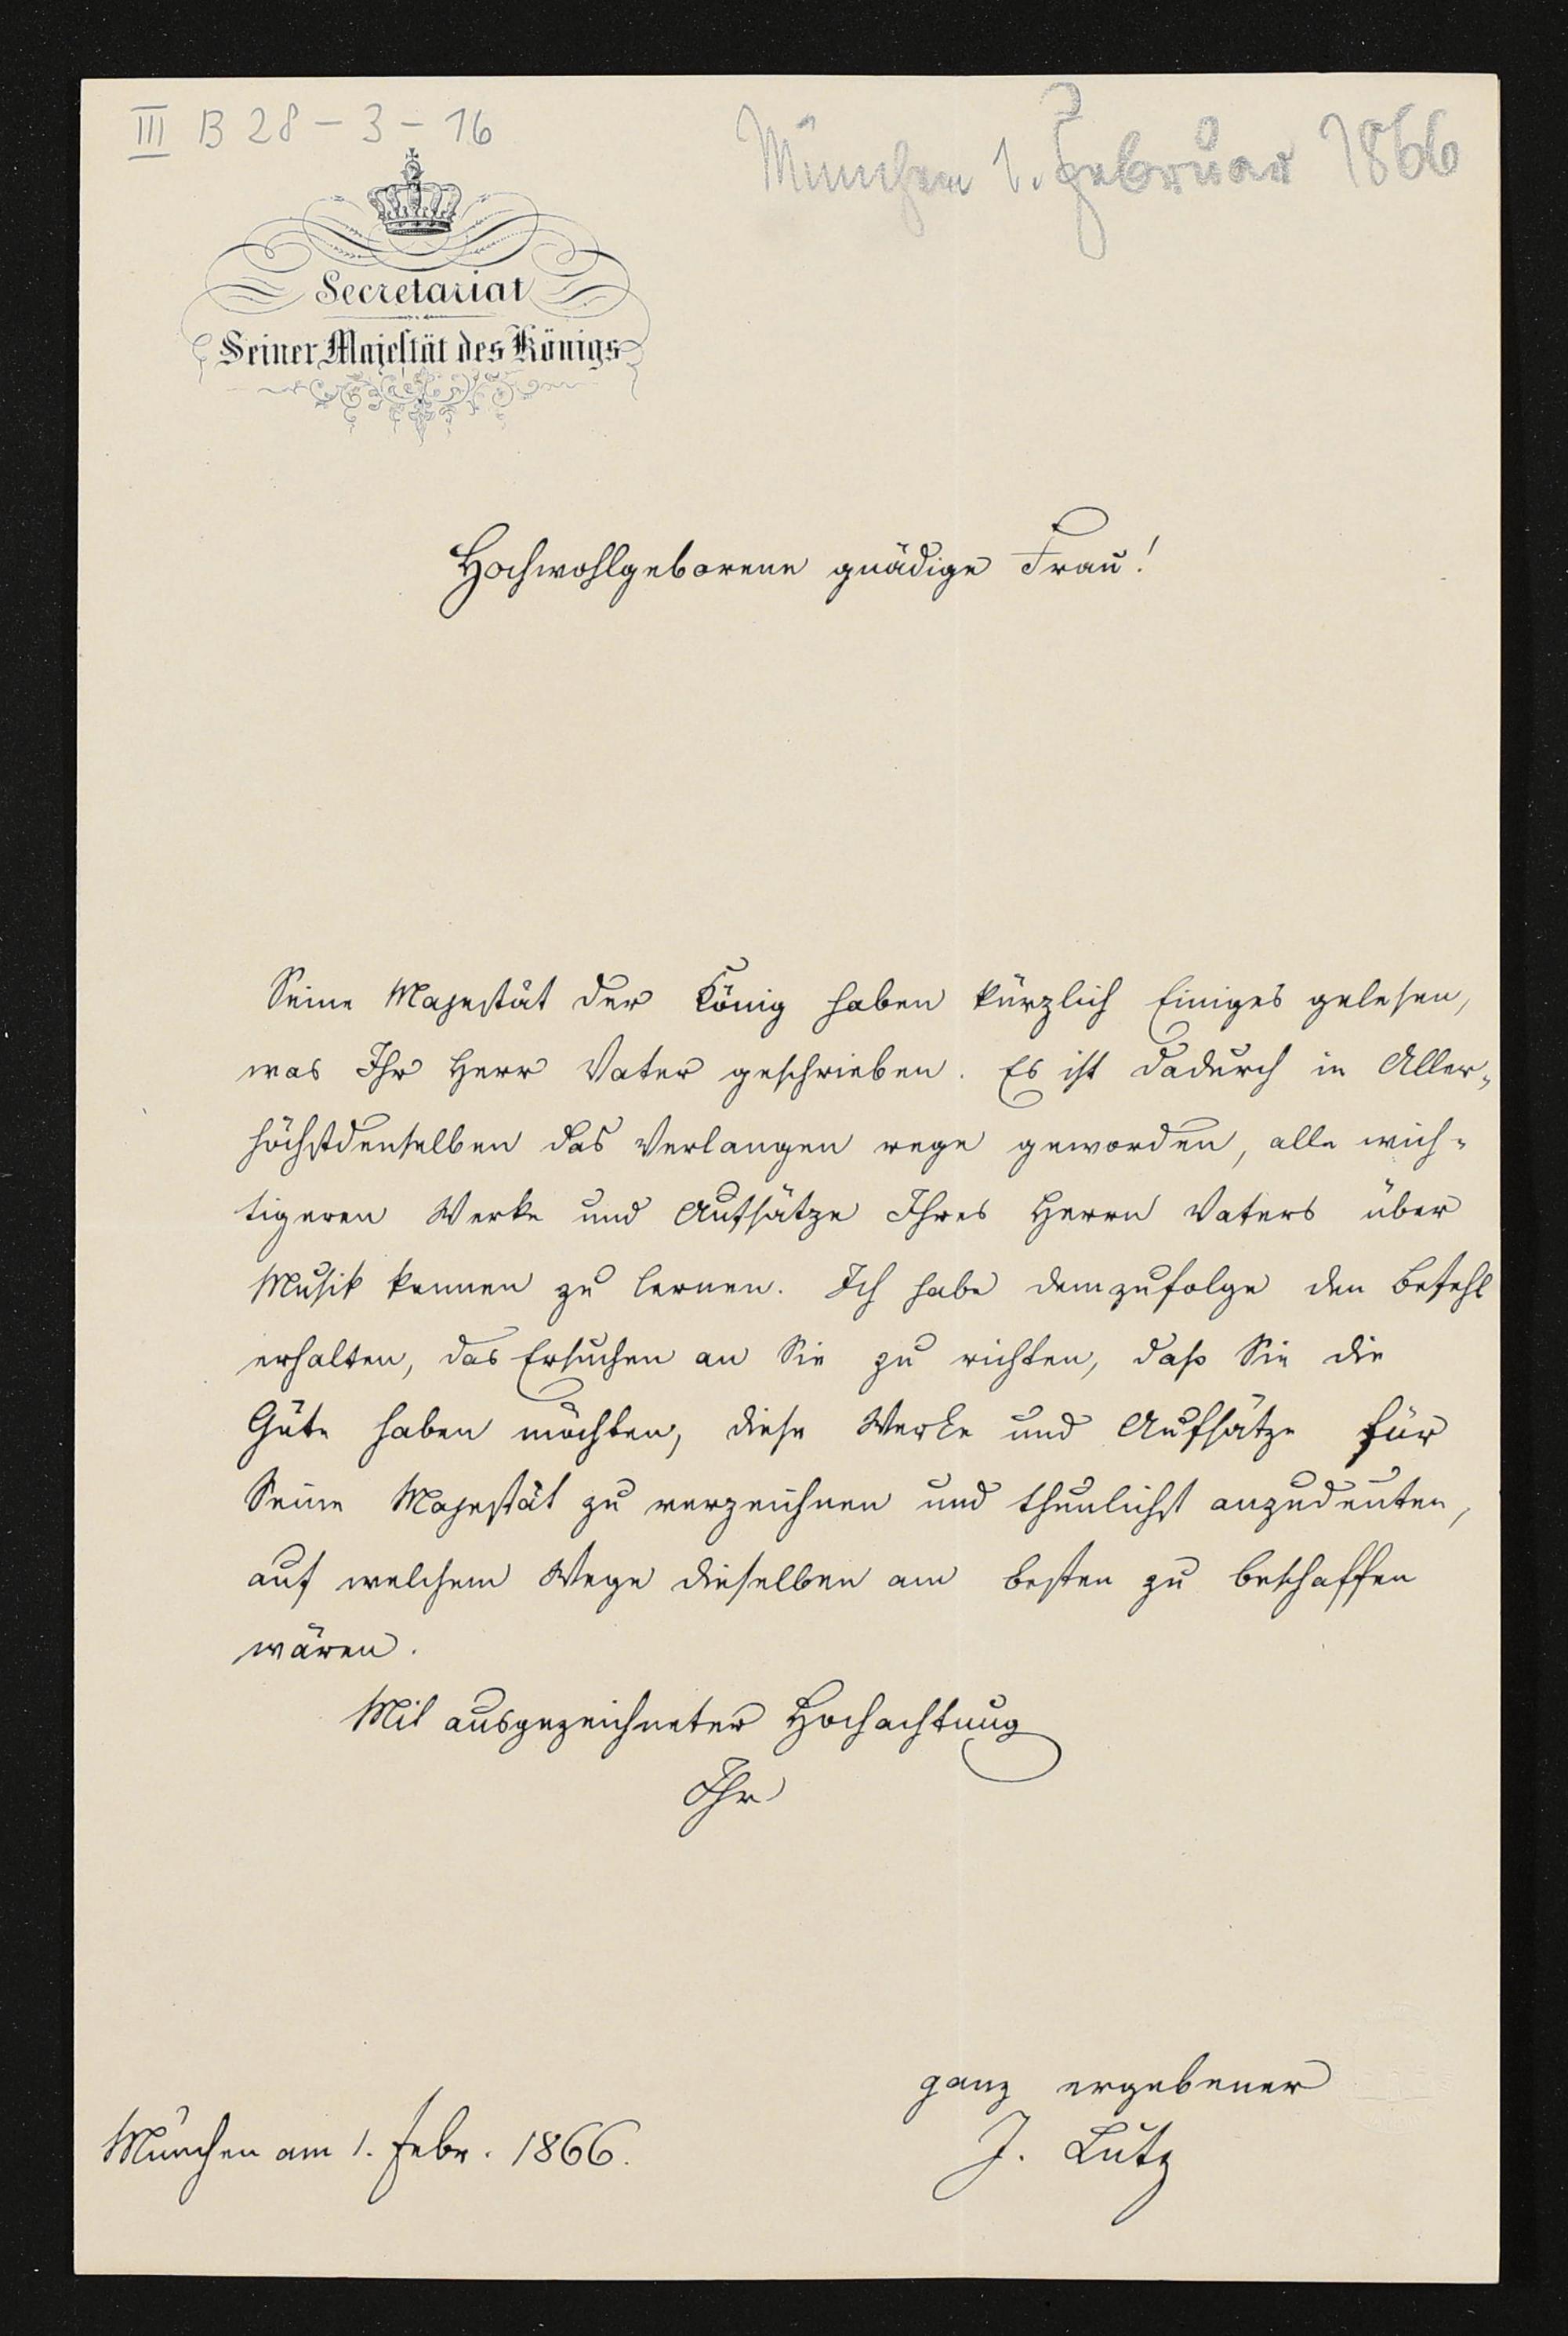 III B 28 - 3 - 16
München 1. Februar 1866
Secretariat
Seiner Majestät des Königs
Hochwohlgeborene gnädige Frau!
Seine Majestät der König haben kürzlich Einiges gelesen,
was Ihr Herr Vater geschrieben. Es ist dadurch in Aller-
höchstdenselben das Verlangen rege geworden, alle wich-
tigeren Werke und Aufsätze Ihres Herrn Vaters über
Musik kennen zu lernen. Ich habe demzufolge den Befehl
erhalten, das Ersuchen an Sie zu richten, daß Sie die
Güte haben möchten, diese Werke und Aufsätze für
Seine Majestät zu verzeichnen und thunlichst anzudeuten,
auf welchem Wege dieselben am besten zu beschaffen
wären.
Mit ausgezeichneter Hochachtung
Ihr
ganz ergebener
München am 1. Febr. 1866.
J. Lutz